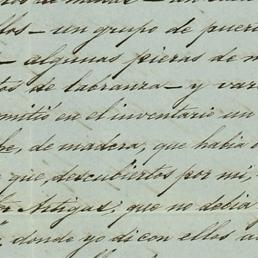 llos - un grupo de puer
- algunas piezas de m
tos de labranza - y var
mitió en el inventario un
he, de madera, que habia
que, descubiertos por mi,
Artigas; que no debia
donde yo di con ellos